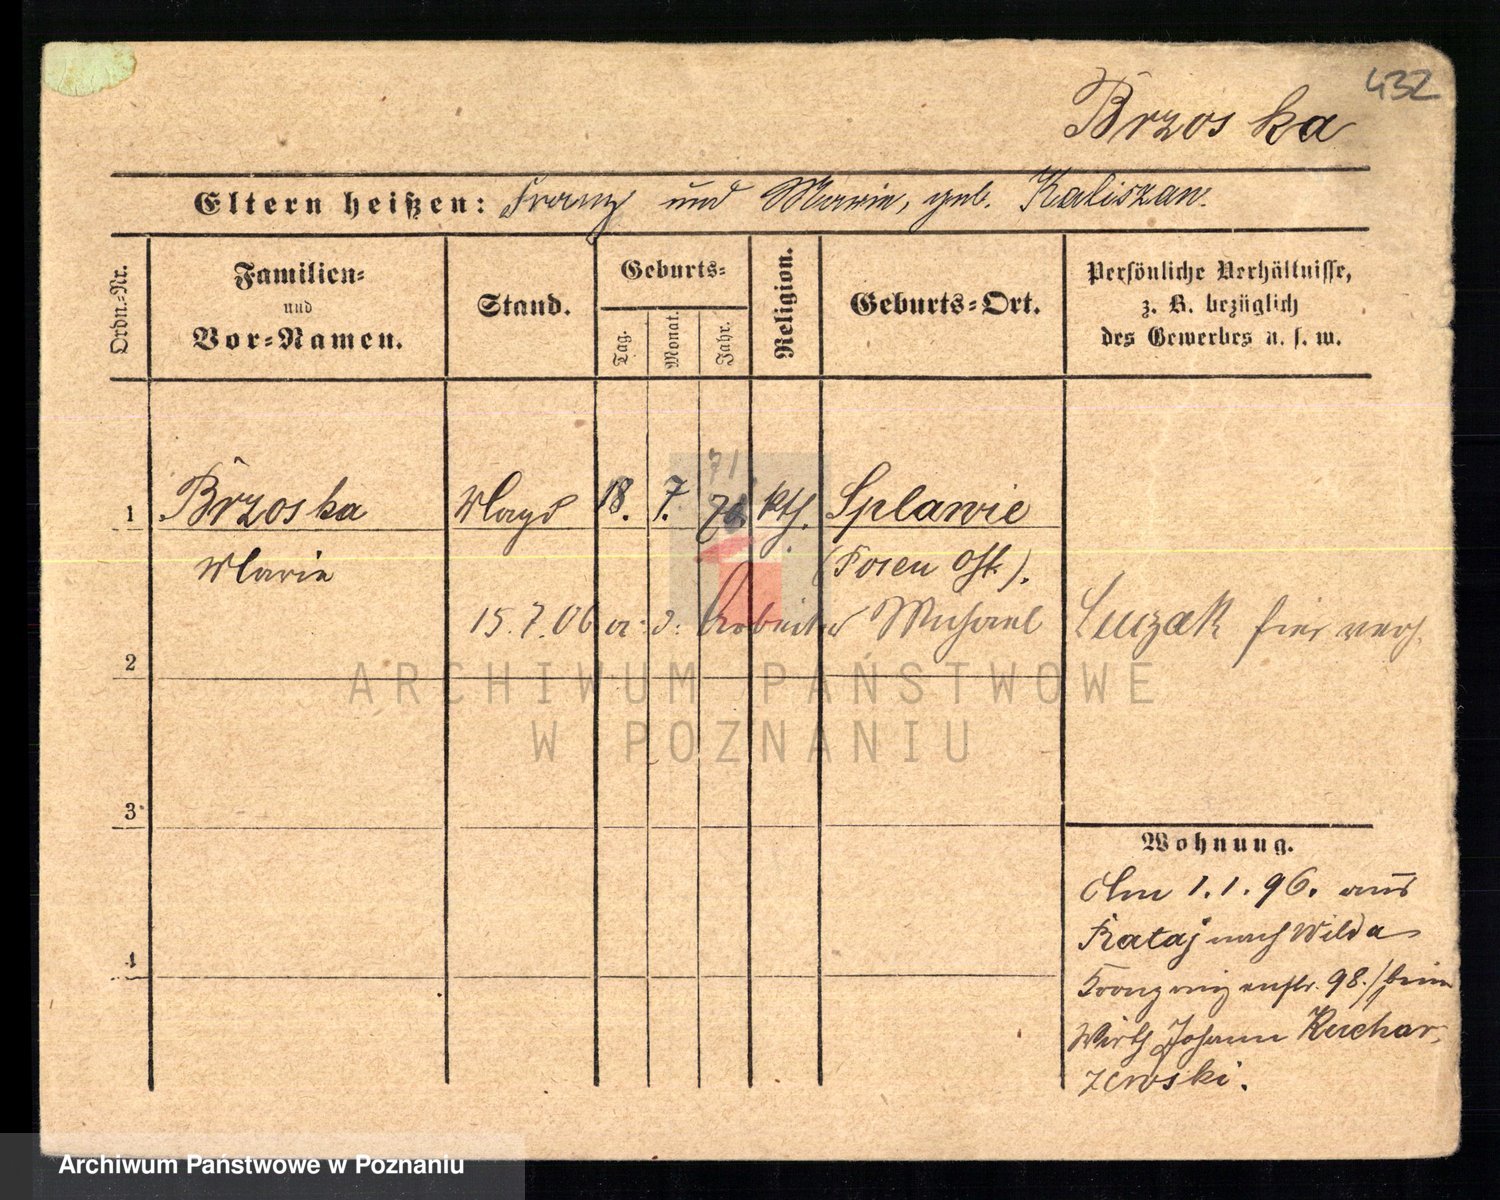 432
Brzoska
Eltern heißen: Franz und Marie, geb. Kaliszan.
Ordn.-Nr.
Familien-
und
Vor-Namen.
Stand.
Geburts-
Tag.
Monat.
Jahr.
Religion.
Geburts-Ort.
Persönliche Verhältnisse,
z. B. bezüglich
des Gewerbes u. s. w.
71
1 Brzoska Magd 18. 7. kth. Splawie
Marie (Posen Ost).
15.7.06 a. d. Arbeiter Michael Luczak hier verh.
2
ARCHIWUM PAŃSTWOWE
W POZNANIU
3
Wohnung.
Am 1.1.96. aus
Rataj nach Wilda
Kronprinzenstr. 98./beim
Wirth Johann Kuchar-
zewski.
4
Archiwum Państwowe w Poznaniu